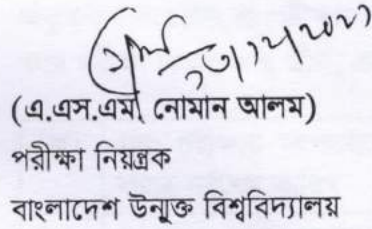 (এ.এস.এম নোমান আলম)
পরীক্ষা নিয়ন্ত্রক
বাংলাদেশ উন্মুক্ত বিশ্ববিদ্যালয়